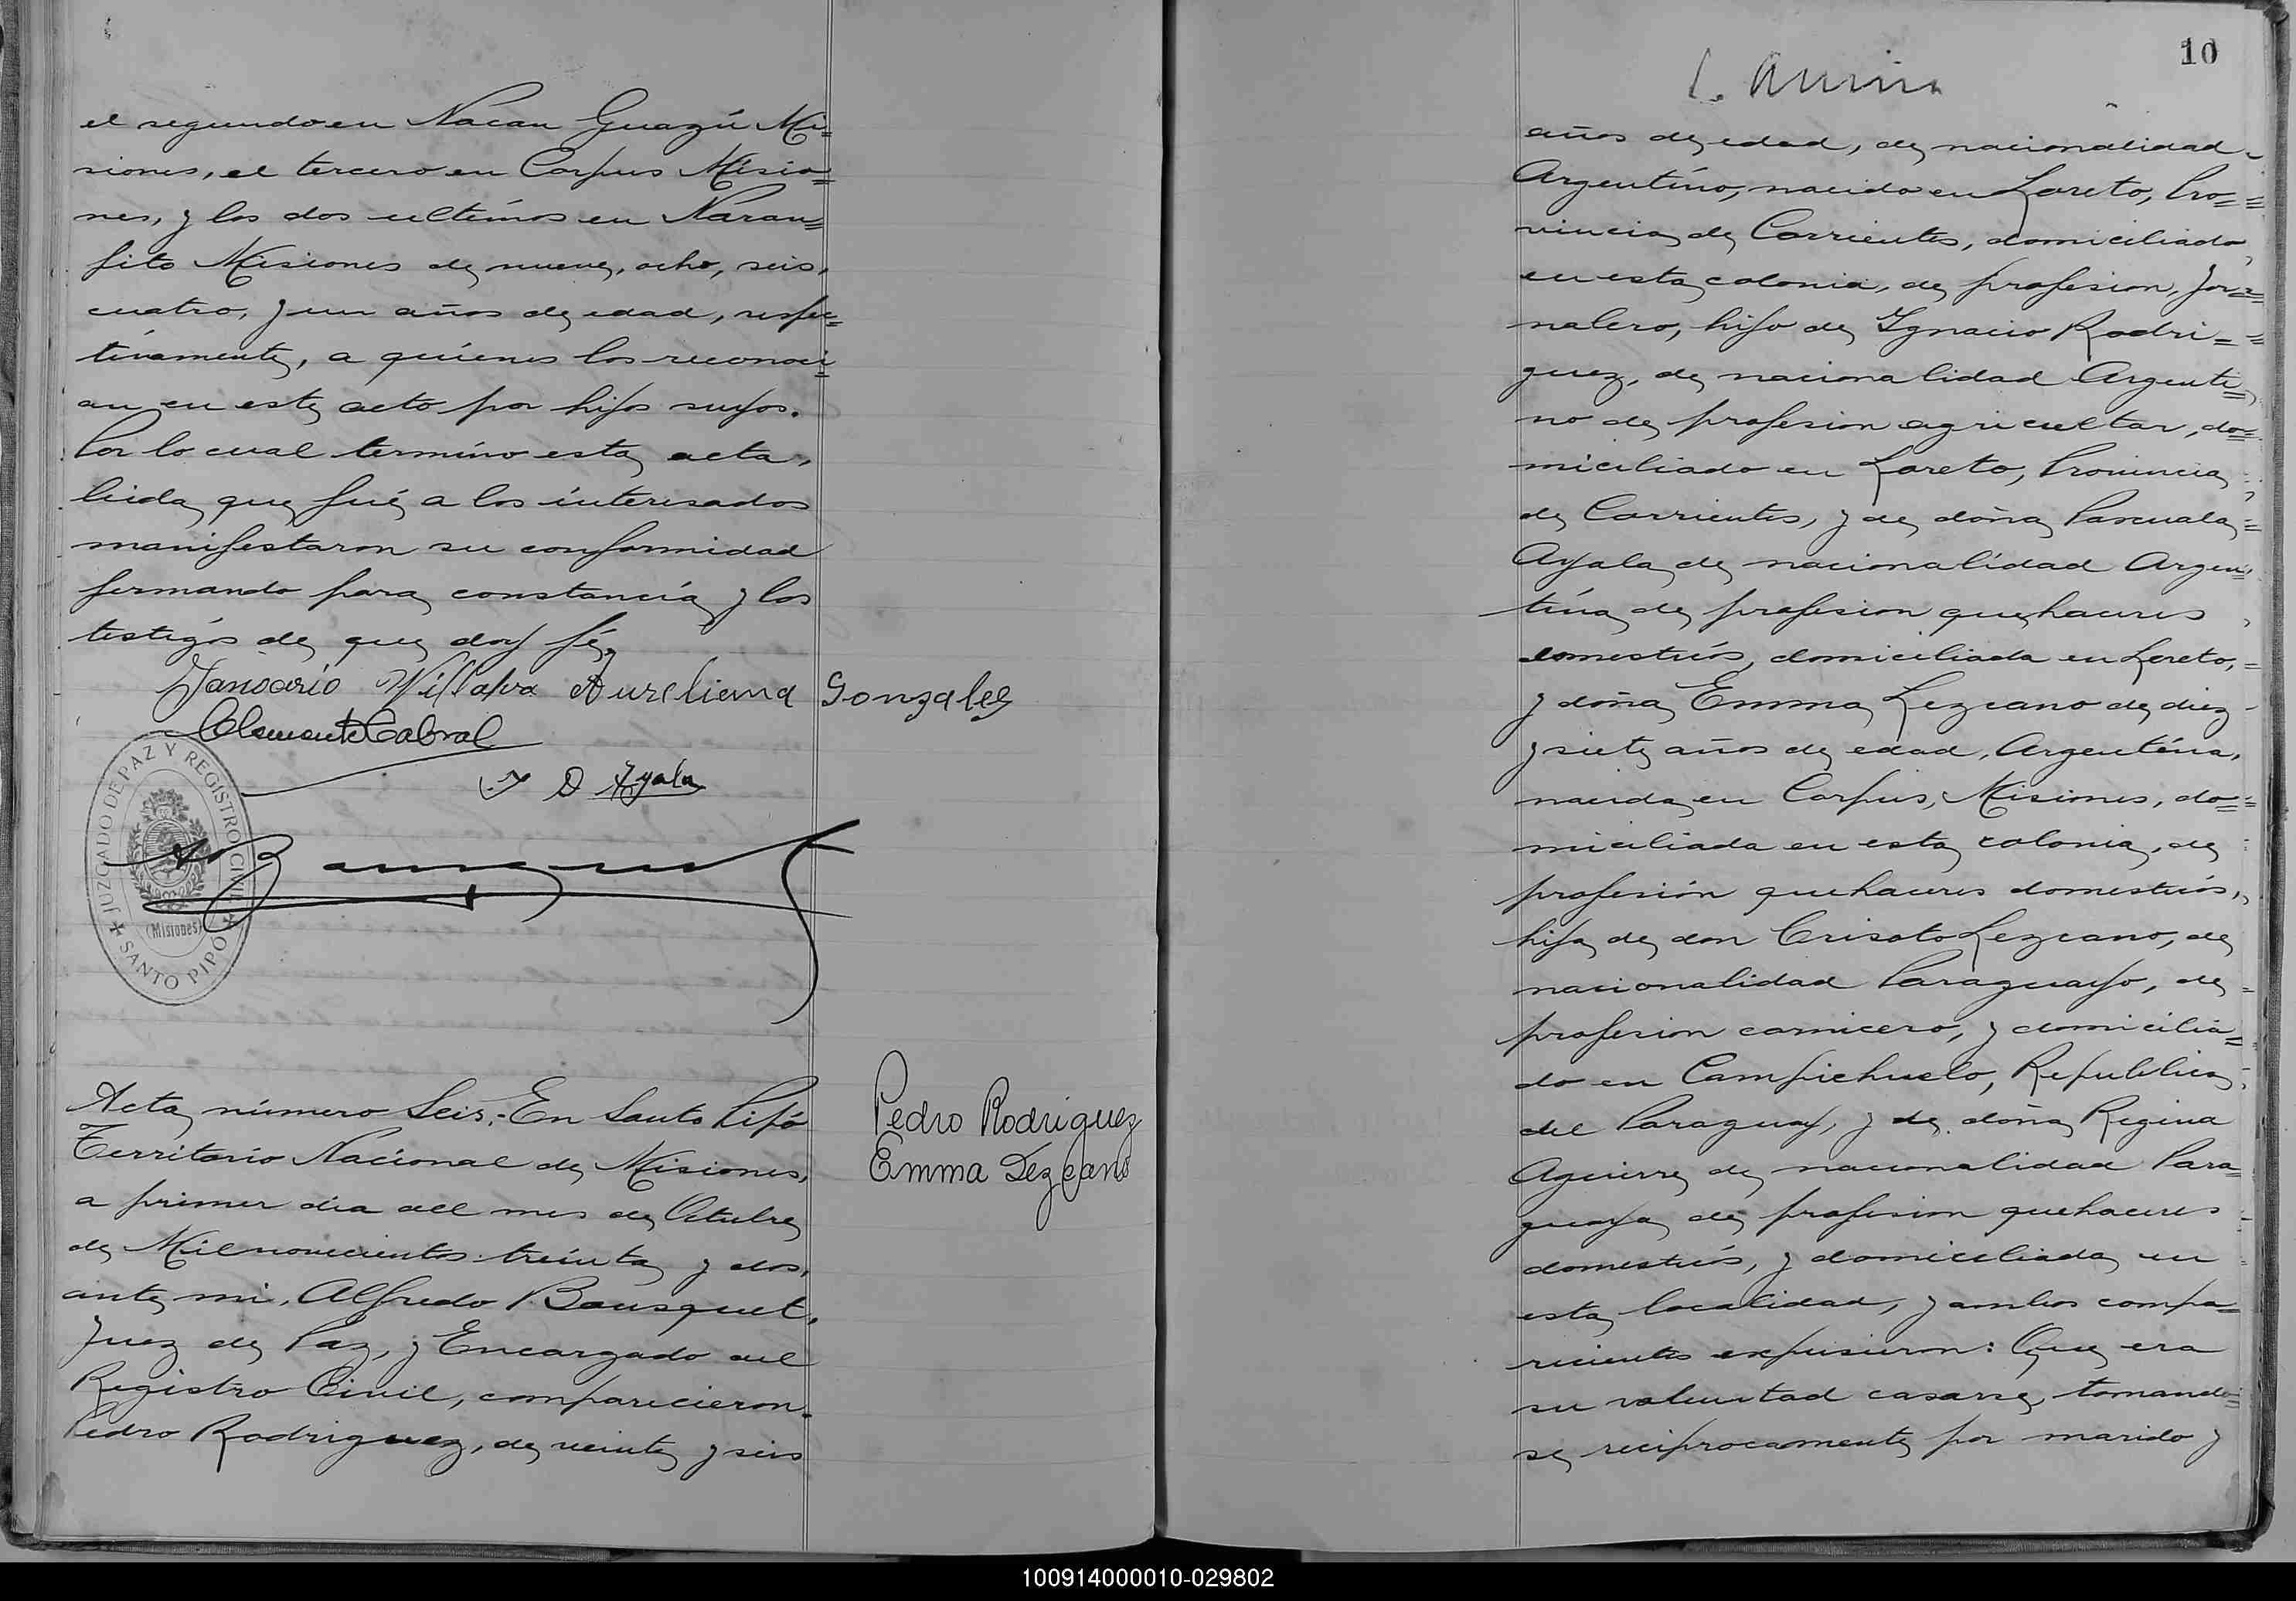 el segundo en Ñacan Guazú Mi=
siones, el tercero en Corpus Misio=
nes, y los dos ultimos en Naran=
jito Misiones de nueve, ocho, seis,
cuatro, y un años de edad, respec=
tivamente, a quienes los reconoci=
an en este acto por hijos suyos.
Por lo cual termino esta acta,
leida que fué a los interesados
manifestaron su conformidad
fermando para constancia y los
testigos de que doy fé.
Janoario Villalva Aureliana Gonzales
Clemente Cabral
D Ayala
JUZGADO DE PAZ Y REGISTRO CIVIL
(Misiones)
SANTO PIPO
Acta número Seis:-En Santo Pipó
Territorio Nacional de Misiones,
a primer dia del mes de Octubre
de Mil novecientos treinta y dos,
ante mi, Alfredo Bousquet,
Juez de Paz, y Encargado del
Registro Civil, comparecieron
Pedro Rodriguez, de veinte y seis
Pedro Rodriguez
Emma Lezcano
10
años de edad, de nacionalidad
Argentino, nacido en Loreto, Pro=
vincia de Corrientes, domiciliado
en esta colonia, de profesion, Jor=
nalero, hijo de Ygnacio Rodri=
guez, de nacionalidad Argenti=
no de profesion agricultor, do=
miciliado en Loreto, Provincia
de Corrientes, y de doña Pascuala
Ayala de nacionalidad Argen=
tina de profesion quehaceres
domesticos, domiciliada en Loreto,
y doña Emma Lezcano de diez
y siete años de edad, Argentina,
nacida en Corpus, Misiones, do=
miciliada en esta colonia, de
profesión quehaceres domesticos,
hija de don Crisoto Lezcano, de
nacionalidad Paraguayo, de
profesion carnicero, y domicilia=
do en Campichuelo, Republica
del Paraguay, y de doña Regina
Aguirre de nacionalidad Para=
guaya de profesion quehaceres
domesticos, y domiciliada en
esta localidad, y ambos compa=
recientes expusieron: Que era
su voluntad casarse, tomando=
se reciprocamente por marido y
100914000010-029802